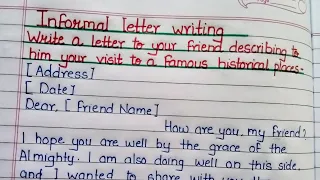 Informal letter writing
Write a letter to your friend describing to
him your visit to a famous historical places-
[Address]
[Date]
Dear, [Friend Name]
How are you, my friend?
I hope you are well by the grace of the
Almighty. I am also doing well on this side.
and I wanted to share with you